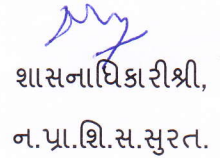 શાસનાધિકારીશ્રી,
ન.પ્રા.શિ.સ.સુરત.